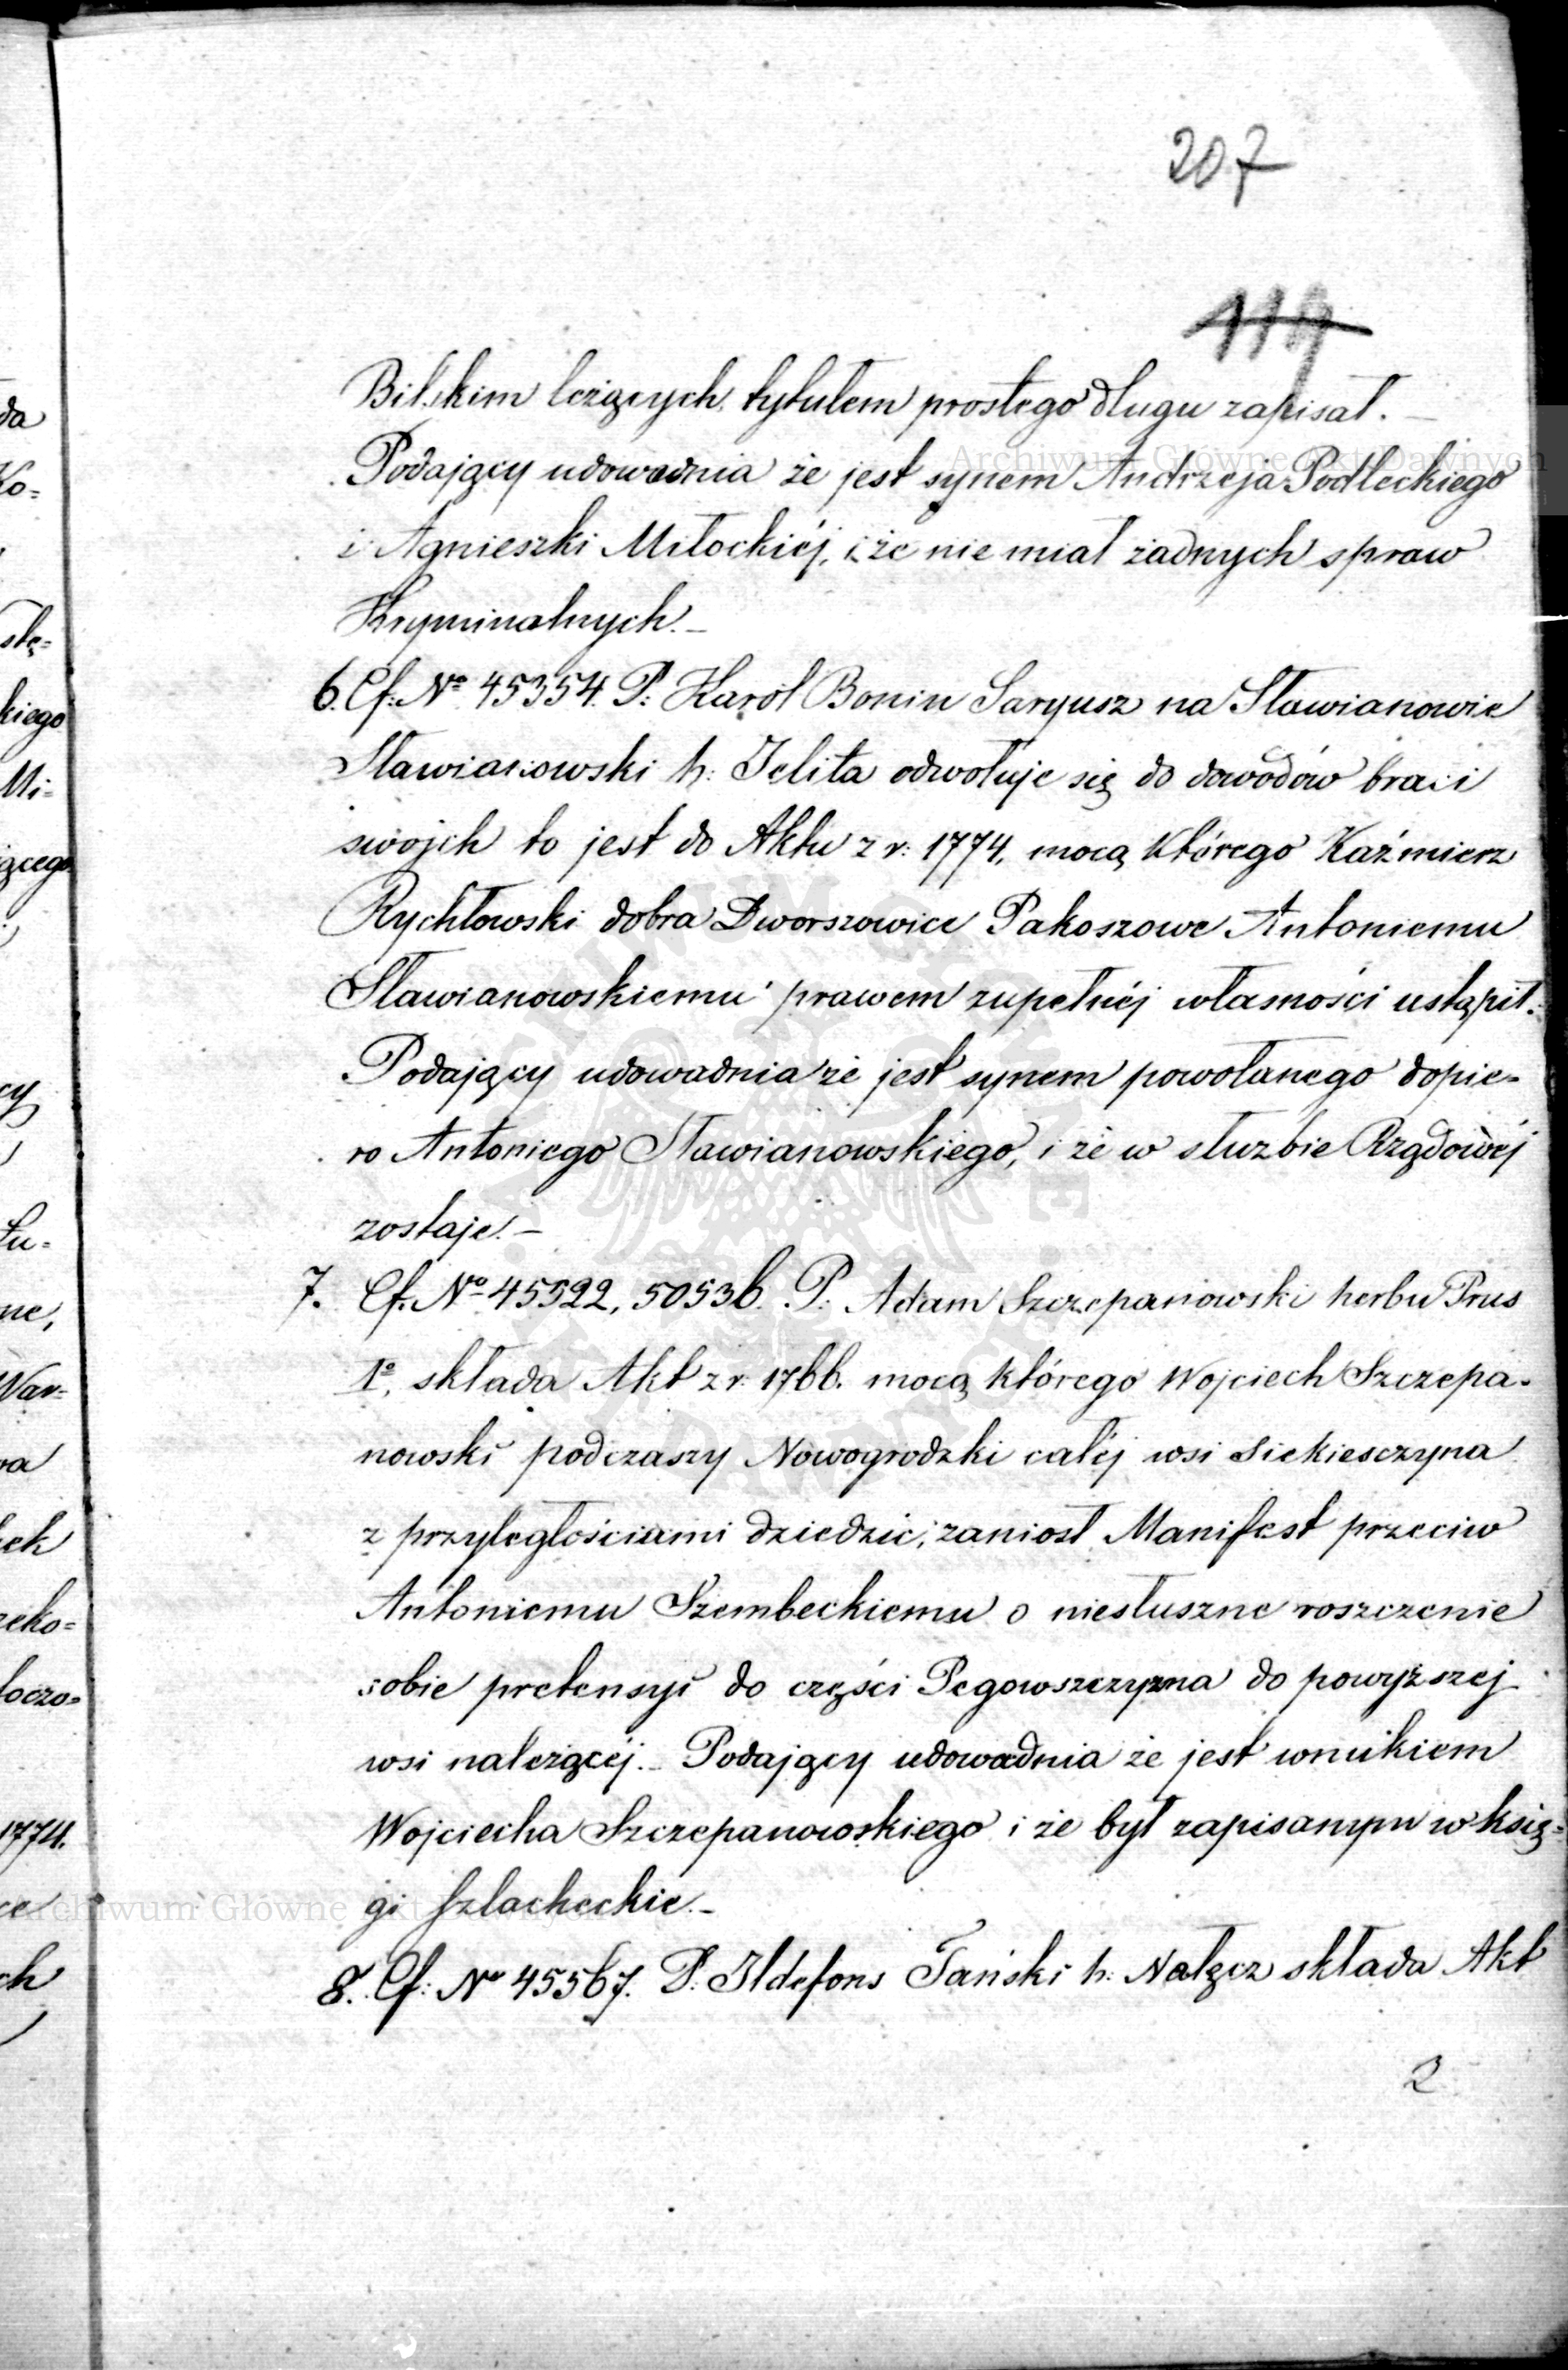 207
119
Bilskim leżących, tytułem prostego długu zapisał. —
Podający udowadnia że jest synem Andrzeja Podleckiego
i Agnieszki Miłockiéj, i że nie miał żadnych spraw
Kryminalnych. —
6. Cf: No 45354. P: Karól Bonin Saryusz na Sławianowie
Sławianowski h: Jelita odwołuje się do dowodów braci
swojch to jest do Aktu z r: 1774, mocą którego Kaźmierz
Rychłowski dobra Dworszowice Pakoszowe Antoniemu
Sławianowskiemu prawem zupełnéj własności ustąpił.
Podający udowadnia że jest synem powołanego dopie-
ro Antoniego Sławianowskiego, i że w służbie Rządowéj
zostaje. —
7. Cf: No 45522, 50536. P: Adam Szczepanowski herbu Prus
1o, składa Akt z r: 1766. mocą którego Wojciech Szczepa-
nowski podczaszy Nowogrodzki całéj wsi Siekiesczyna
z przyległościami dziedzic, zaniosł Manifest przeciw
Antoniemu Szembeckiemu o niesłuszne roszczenie
sobie pretensyi do części Pegowszczyzna do powyższej
wsi należącéj. — Podający udowadnia że jest wnukiem
Wojciecha Szczepanowskiego i że był zapisanym w księ=
gi szlacheckie. —
8. Cf: No 45567. P: Ildefons Tański h: Nałęcz składa Akt
2